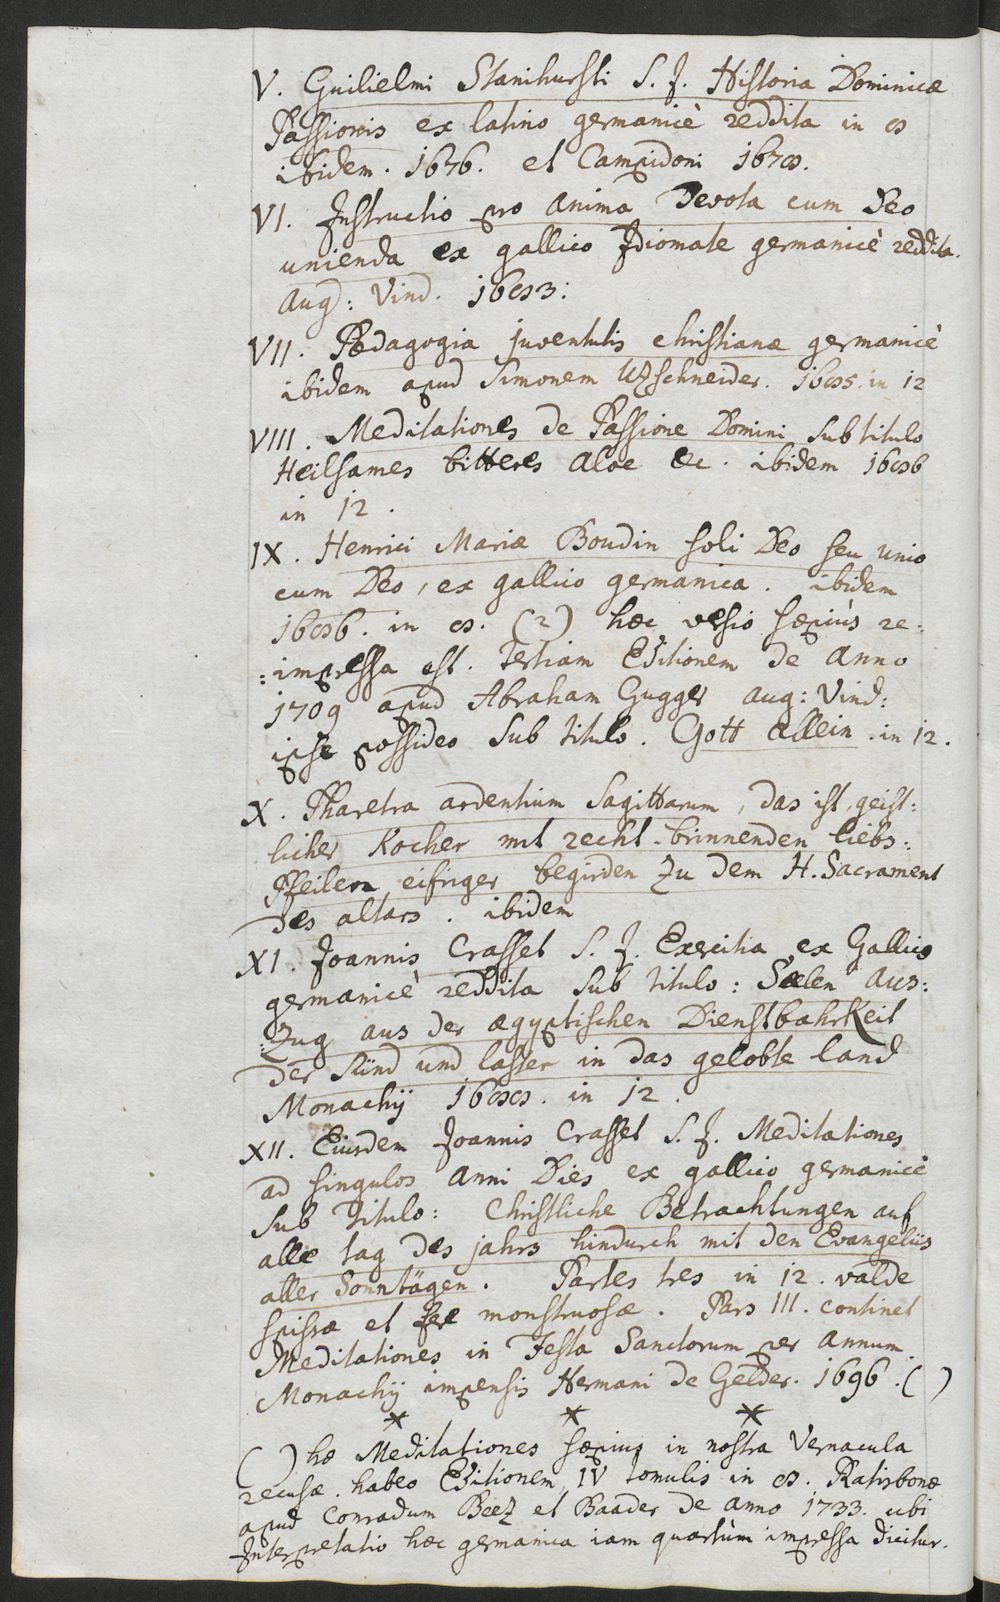 V. Guilielmi Stanihursti S. J. Historia Dominicæ
Passionis ex latino germanicè reddita in 8
ibidem. 1676. et Campidoni 1678.
VI. Instructio pro anima Devota cum Deo
unienda ex gallico Idiomate germanicè reddita.
Aug: Vind. 1683:
VII. Pædagogia juventutis christianæ germanicè
ibidem apud Simonem Utzschneider. 1685. in 12
VIII. Meditationes de Passione Domini sub titulo
Heilsames bitteres Aloe &c. ibidem 1686
in 12.
IX. Henrici Mariæ Boudin soli Deo seu unio
cum Deo, ex gallico germanica. ibidem
1686. in 8. (2) hæc versio sæpiùs re:
:impressa est. tertiam Editionem de Anno
1709 apud Abraham Gugger Aug: Vind:
ipse possideo sub titulo. Gott allein. in 12.
X. Pharetra ardentium Sagittarum, das ist, geist:
licher Kocher mit recht-brinnenden liebs:
Pfeilern eifriger begirden zu dem H. Sacrament
des altars. ibidem
XI. Joannis Crasset S. J. Exercitia ex Gallico
germanicè reddita sub titulo: Sælen Aus:
:zug aus der ægyptischen Dienstbahrkeit
der Sünd und laster in das gelobte land
Monachij 1688. in 12.
XII. Eiusdem Joannis Crasset S. J. Meditationes
ad singulos anni Dies ex gallico germanicè
sub Titulo: Christliche Betrachtungen auf
alle tag des jahrs hindurch mit den Evangeliis
aller Sonntägen. Partes tres in 12. valde
spissæ et fere monstruosæ. Pars III. continet
Meditationes in Festa Sanctorum per annum.
Monachij impensis Hermani de Gelder. 1696. ( )
* * *
( ) hæ Meditationes sæpius in nostra Vernacula
recusæ. habeo Editionem IV tomulis in 8. Ratisbonæ
apud Conradum Beez et Baader de anno 1733. ubi
Interpretatio hæc germanica iam quartùm impressa dicitur.